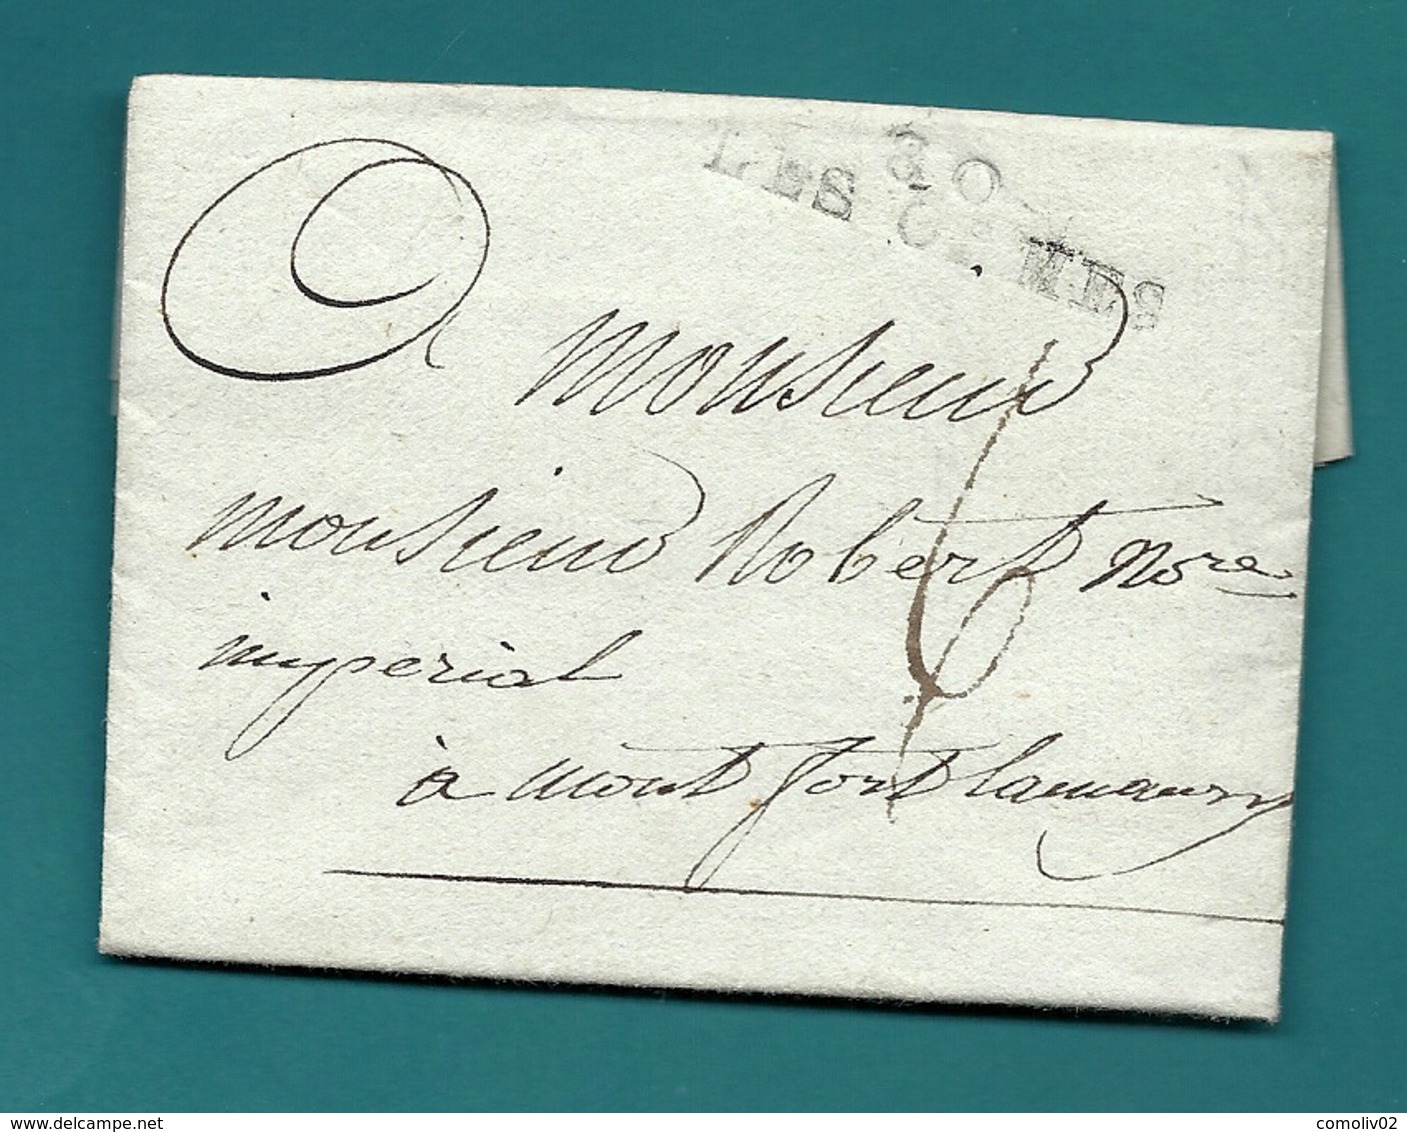 80
LES ORMES
A Monsieur
Monsieur Robert No.re
imperial
à Montfort lamaury
6
www.delcampe.net
comoliv02